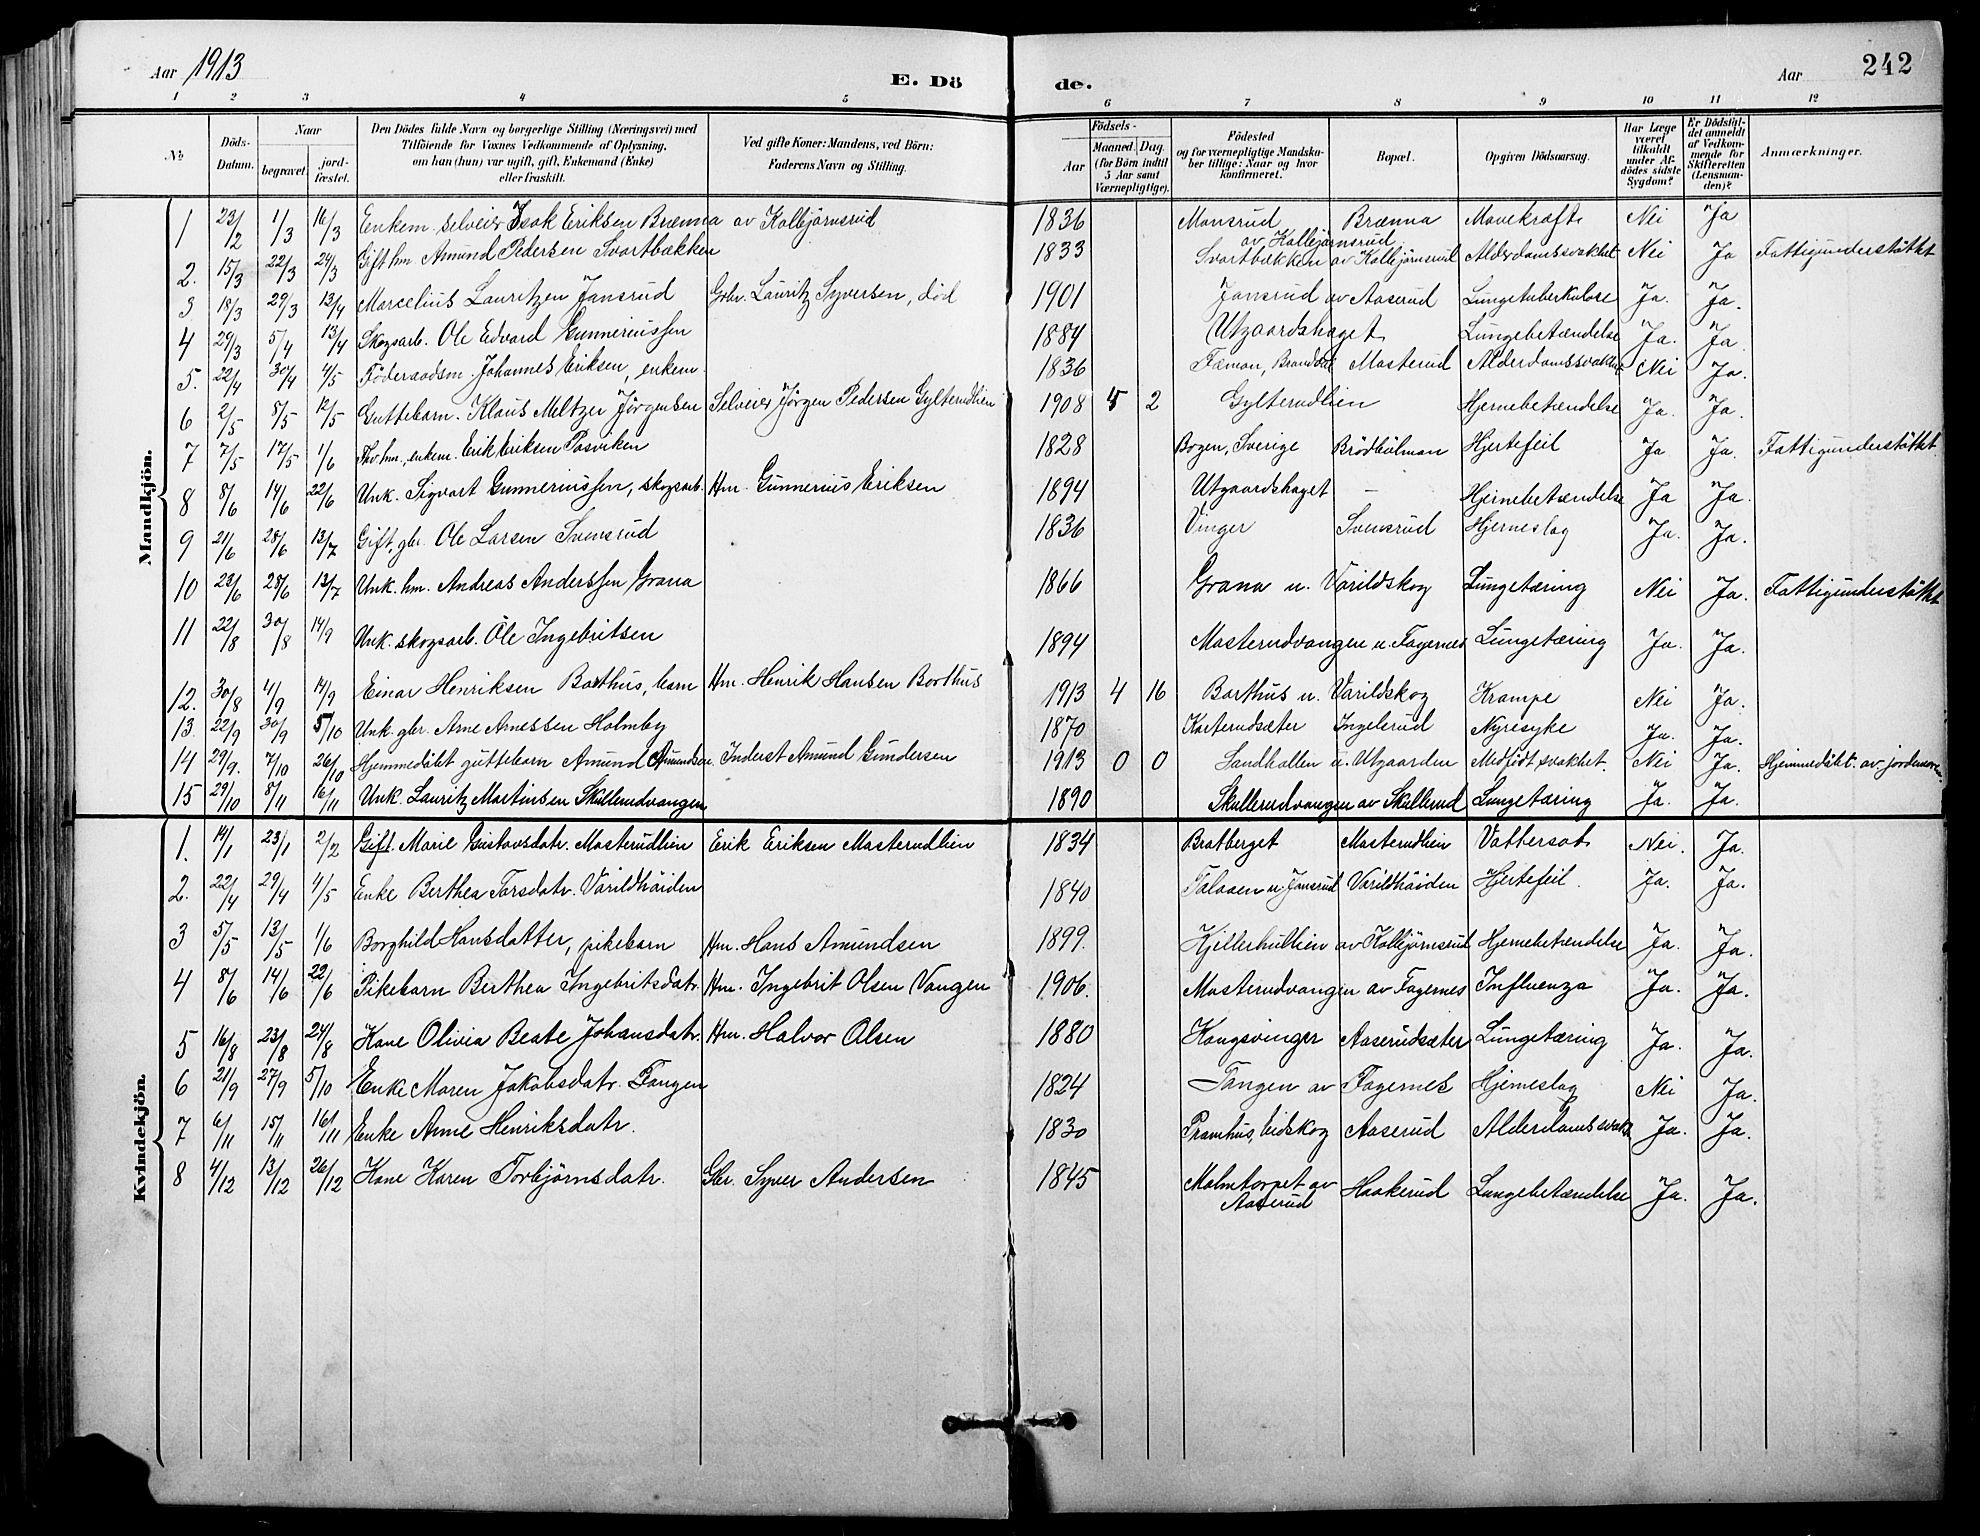 Aar 1913 E. Dö de. Aar 242
1 2 3 4 5 6 7 8 9 10 11 12
No
Döds-Datum.
Naar begravet. jordfæstet.
Den Dödes fulde Navn og borgerlige Stilling (Næringsvei) med Tilföiende for Voxnes Vedkommende af Oplysning, om han (hun) var ugift, gift, Enkemand (Enke) eller fraskilt.
Ved gifte Koner: Mandens, ved Börn: Faderens Navn og Stilling.
Födsels- Aar Maaned. Dag. (for Börn indtil 5 Aar samt Værnepligtige).
Födested og for værnepligtige Mandskaber tillige: Naar og hvor konfirmeret.
Bopæl.
Opgiven Dödsaarsag.
Har Læge været tilkaldt under Afdödes sidste Sygdom?
Er Dödsfaldet anmeldt af Vedkommende for Skifteretten (Lensmanden)?
Anmærkninger.
Mandkjön.
1 23/2 1/3 16/3 Enkem. selveier Isak Eriksen Brænna av Kolbjörnsrud 1836 Monsrud av Kolbjörnsrud Brænna Mavekræft Nei Ja
2. 15/3 22/3 24/3 Gift hm. Amund Pedersen Svartbækken 1833 Svartbækken av Kolbjörnsrud Alderdomssvakhet Nei Ja Fattigunderstöttet
3 18/3 29/3 13/4 Marcelius Lauritzen Jansrud Gbr. Lauritz Syversen, död 1901 Jansrud av Aaserud Lungetuberkulose Ja. Ja.
4 29/3 5/4 13/4 Skogsarb. Ole Edvard Gunneriussen 1884 Utgaardshaget Lungebetændelse Ja. Ja.
5. 22/4 30/4 4/5 Föderaadsm. Johannes Eriksen, enkem. 1836 Masterud Alderdomssvakhet Nei Ja.
6 2/5 8/5 12/5 Guttebarn. Klaus Meltzer Jörgensen Selveier Jörgen Pedersen Gylterudlien 1908 5 2 Gylterudlien Hjernebetændelse Ja. Ja.
7 7/5 17/5 1/6 Fhv. hm., enkem. Erik Eriksen Posviken 1828 Bogen, Sverige Brödbölmon Hjertefeil Ja Ja. Fattigunderstöttet
8 8/6 14/6 22/6 Unk. Sigvart Gunneriussen, skogsarb. Hm. Gunnerius Eriksen 1894 Utgaardshaget - Hjernebetændelse Ja Ja.
9 21/6 28/6 13/7 Gift, gbr. Ole Larsen Svensrud 1836 Vinger Svensrud Hjerneslag Ja. Ja.
10 23/6 28/6 13/7 Unk. hm. Andreas Anderssen Grana 1866 Grana u. Varildskog Lungetæring Nei Ja. Fattigunderstöttet
11 22/8 30/8 14/9 Unk. skogsarb. Ole Ingebritsen 1894 Masterudvangen u. Fagernes Lungetæring Ja. Ja.
12. 30/8 4/9 14/9 Einar Henriksen Borthus, barn Hm. Henrik Hansen Borthus 1913 4 16 Borthus u. Varildskog Krampe Nei Ja.
13. 22/9 30/9 5/10 Unk. gbr. Arne Arnessen Holmby 1870 Karterudsæter Ingelsrud Nyresyke Ja. Ja.
14 29/9. 7/10 26/10 Hjemmedöbt guttebarn Amund Amundsen. Inderst Amund Gundersen 1913 0 0 Sandhollen u. Utgaarden Medfödt svakhet. Nei Ja. Hjemmedöbt av jordmoren.
15 29/10 8/11 16/11 Unk. Lauritz Martinsen Skullerudvangen 1890 Skullerudvangen av Skullerud Lungetæring Ja. Ja.
Kvindekjön.
1. 14/1 23/1 2/2 Gift. Marie Gustavsdatr. Masterudlien Erik Eriksen Masterudlien 1834 Bratberget Masterudlien Vattersot Nei. Ja.
2. 22/4 29/4 4/5 Enke Berthea Torsdatr. Varildhöiden 1840 Taloaen u. Jansrud Varildhöiden Hjertefeil. Ja. Ja.
3 5/5 13/5 1/6 Borghild Hansdatter, pikebarn Hm. Hans Amundsen 1899. Kjillerhullien av Kolbjörnsrud Hjernebetændelse Ja. Ja.
4 8/6 14/6 22/6 Pikebarn Berthea Ingebritsdatr. Hm. Ingebrit Olsen Vangen 1906. Masterudvangen av Fagernes Influenza Ja. Ja.
5 16/8 23/8 24/8 Kone Olivia Beate Johansdatr. Hm. Halvor Olsen 1880 Kongsvinger Aaserudsæter Lungetæring Ja. Ja.
6 21/9 27/9 5/10 Enke Maren Jakobsdatr. Tangen 1824 Tangen av Fagernes Hjerneslag Nei Ja.
7 6/11 15/11 16/11 Enke Anne Henriksdatr. 1830 Pramhus, Eidskog Aaserud Alderdomssvakh Ja. Ja.
8 4/12 13/12 26/12 Kone Karen Torbjörnsdatr. Gbr. Syver Andersen 1845 Malmtorpet av Aaserud Haakerud Lungebetændelse Ja. Ja.